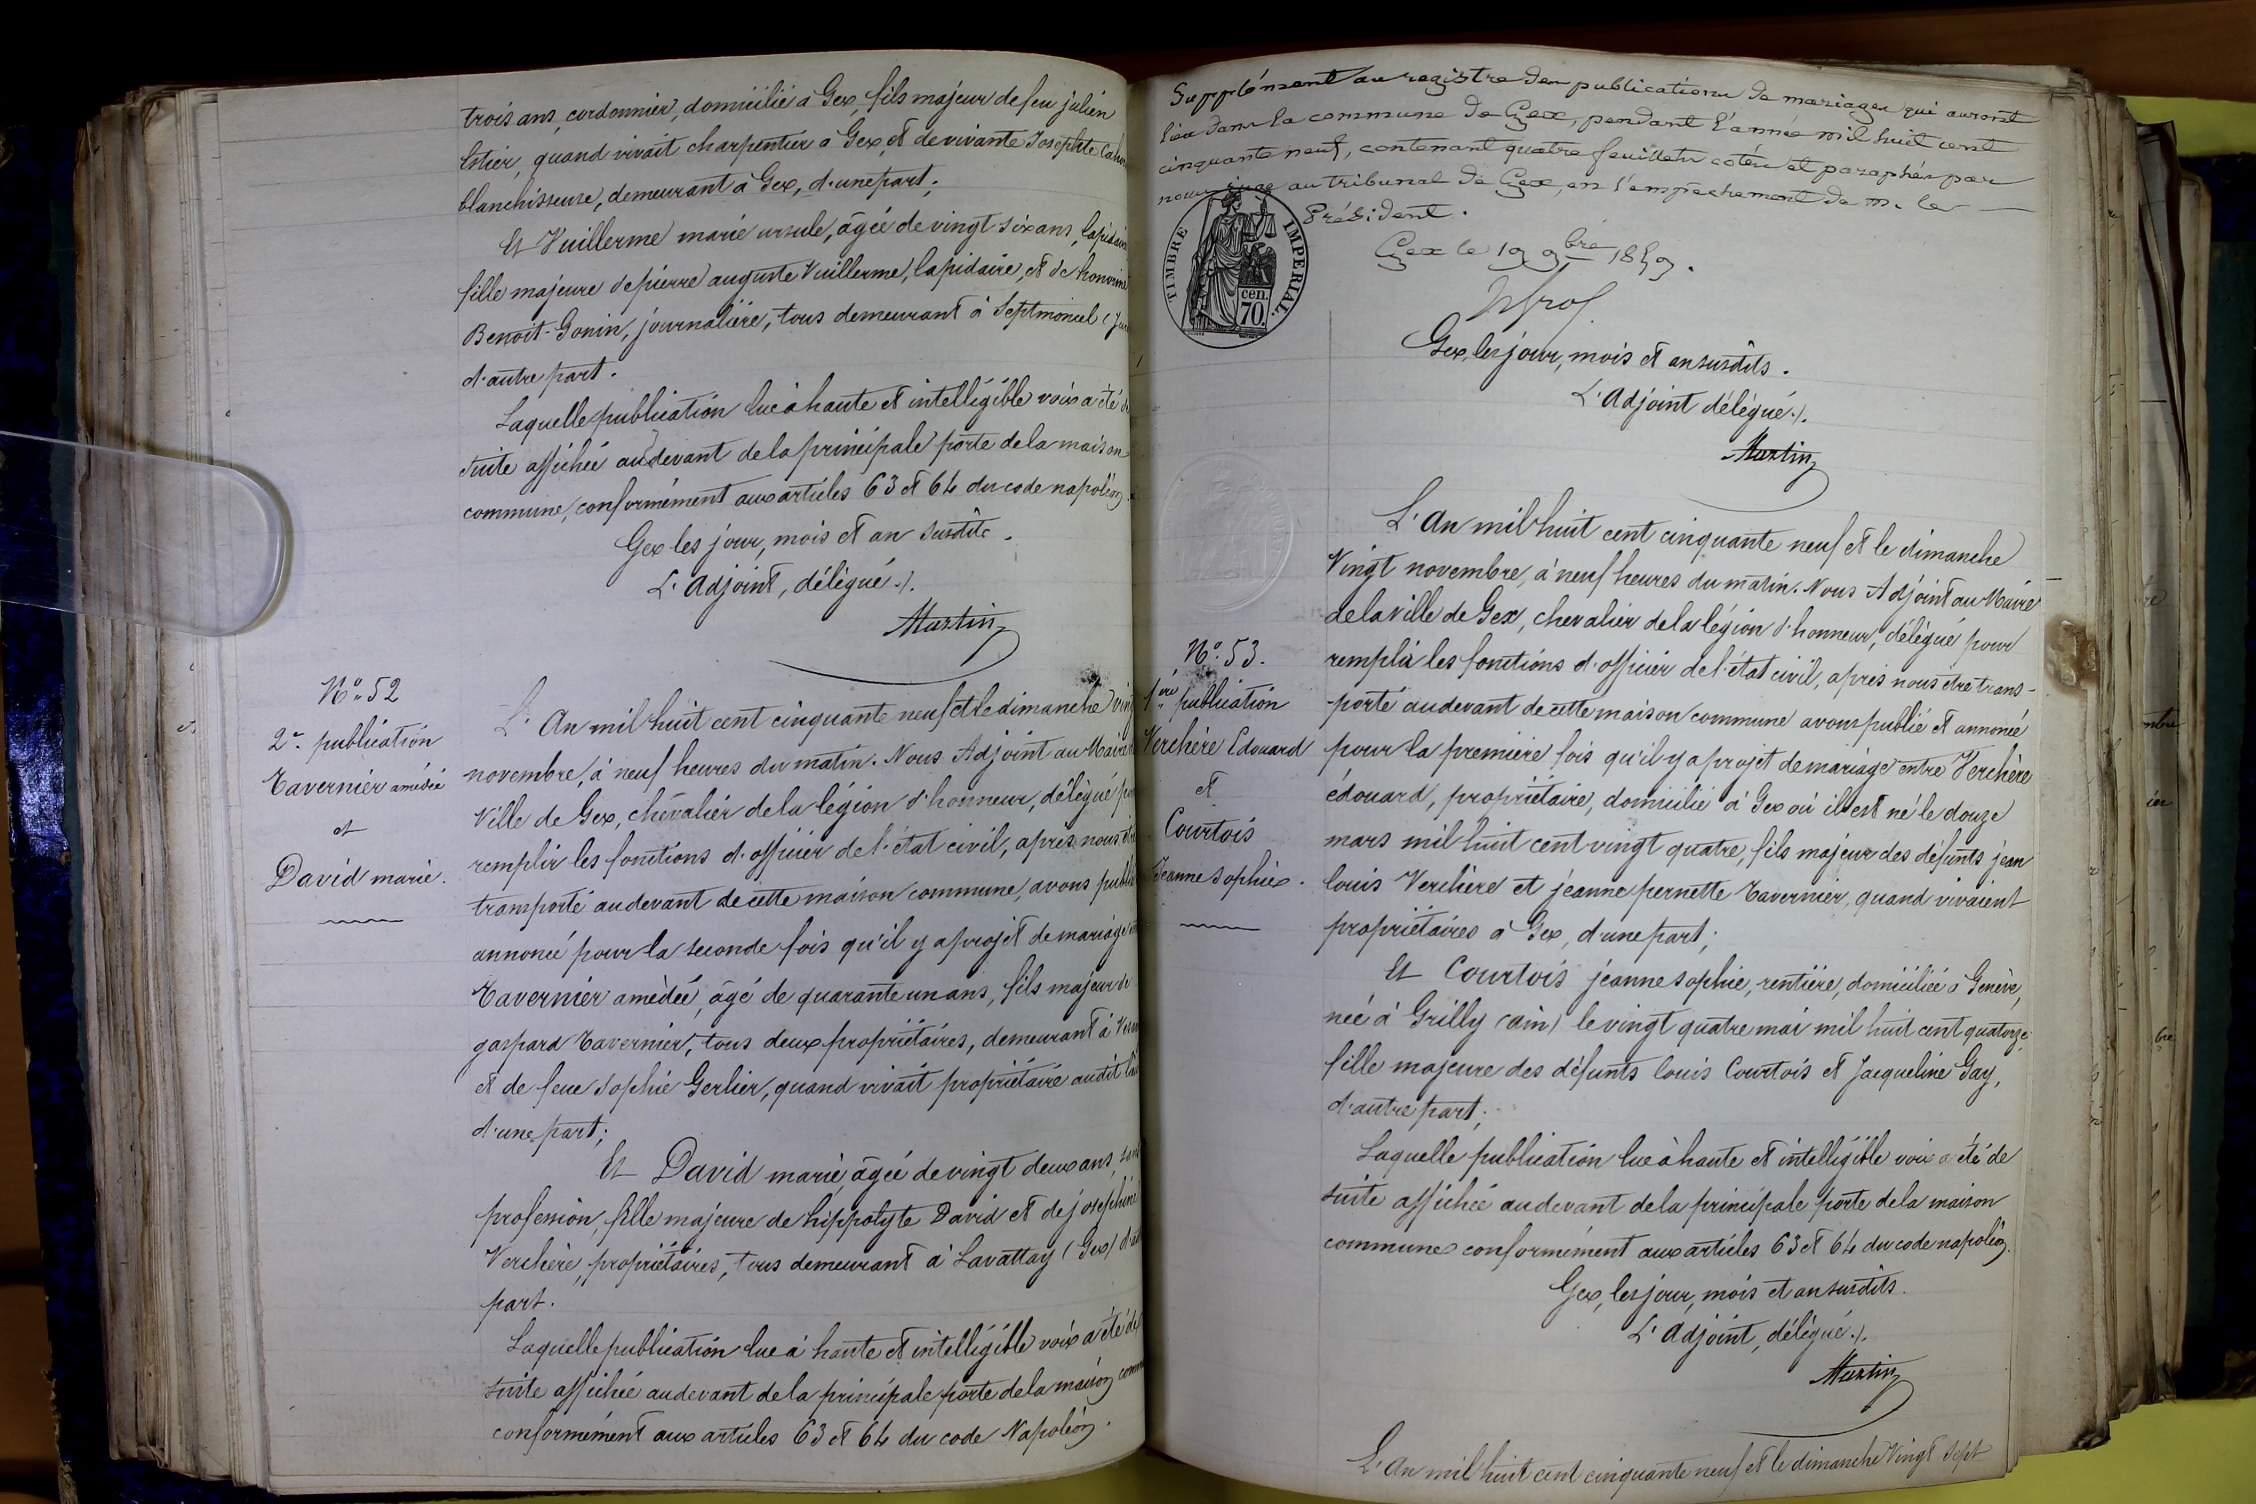 trois ans, cordonnier, domicilié à Gex, fils majeur de feu julien
quand vivait charpentier à Gex, et de vivante Josephte
blanchisseuse, demeurant à Gex, d'une part;
Et Vuillerme marie ursule, âgée de vingt six ans,
fille majeure de pierre auguste Vuillerme, lapidaire, et de honorine
Benoit-Gonin, journalière, tous demeurant à Septmoncel
d'autre part.
Laquelle publication lue à haute et intelligible voix a été
suite affichée au devant de la principale porte de la maison
commune, conformément aux articles 63 et 64 du code napoléon.
Gex les jour, mois et an susdits.
L'Adjoint, délégué ./.
Martin
N.º 52
2e. publication
Tavernier amédée
et
David marie.
L'An mil huit cent cinquante neuf et le dimanche
novembre, à neuf heures du matin. Nous Adjoint au Maire
Ville de Gex, chevalier de la légion d'honneur, délégué
remplir les fonctions d'officier de l'état civil, après nous
transporté au devant de cette maison commune, avons
annoncé pour la seconde fois qu'il y a projet de mariage
Tavernier amédée, âgé de quarante un ans, fils majeur de
gaspard Tavernier, tous deux propriétaires, demeurant à
et de feue Sophie Gerlier, quand vivait propriétaire audit
d'une part;
Et David marie, âgée de vingt deux ans,
profession, fille majeure de hippolyte David et de joséphine
Verchère, propriétaires, tous demeurant à Lavattay (Gex)
part.
Laquelle publication lue à haute et intelligible voix a été
suite affichée au devant de la principale porte de la maison
conformément aux articles 63 et 64 du code Napoléon.
Supplément au registre des publications de mariages qui auront
lieu dans la commune de Gex, pendant l'année mil huit cent
cinquante neuf, contenant quatre feuillets cotés et paraphés par
nous juge au tribunal de Gex, en l'empêchement de M. le
Président.
Gex le 19 9bre 1859.
TIMBRE IMPERIAL.
cen.
70.
Gex, les jour, mois et an susdits.
L'Adjoint délégué ./.
Martin
N.º 53.
1ère publication
Verchère Edouard
et
Courtois
Jeanne Sophie.
L'An mil huit cent cinquante neuf et le dimanche
Vingt novembre, à neuf heures du matin. Nous Adjoint au Maire
de la ville de Gex, chevalier de la légion d'honneur, délégué pour
remplir les fonctions d'officier de l'état civil, après nous être trans-
porté au devant de cette maison commune avons publié et annoncé
pour la première fois qu'il y a projet de mariage entre Verchère
édouard, propriétaire, domicilié à Gex où il est né le douze
mars mil huit cent vingt quatre, fils majeur des défunts jean
louis Verchère et jeanne pernette Tavernier, quand vivaient
propriétaires à Gex, d'une part;
Et Courtois jeanne sophie, rentière, domiciliée à Genève,
née à Grilly (ain) le vingt quatre mai mil huit cent quatorze
fille majeure des défunts louis Courtois et Jacqueline Gay,
d'autre part;
Laquelle publication lue à haute et intelligible voix a été de
suite affichée au devant de la principale porte de la maison
commune conformément aux articles 63 et 64 du code napoléon.
Gex, les jour, mois et an susdits.
L'Adjoint, délégué ./.
Martin
L'An mil huit cent cinquante neuf et le dimanche Vingt sept